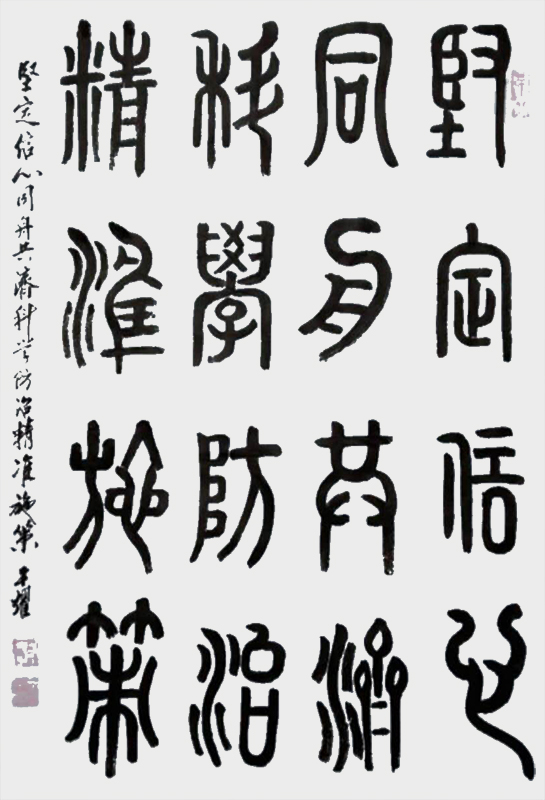 堅定信心
同舟共濟
科學防治
精準施策
堅定信心同舟共濟科学防治精准施策 王耀